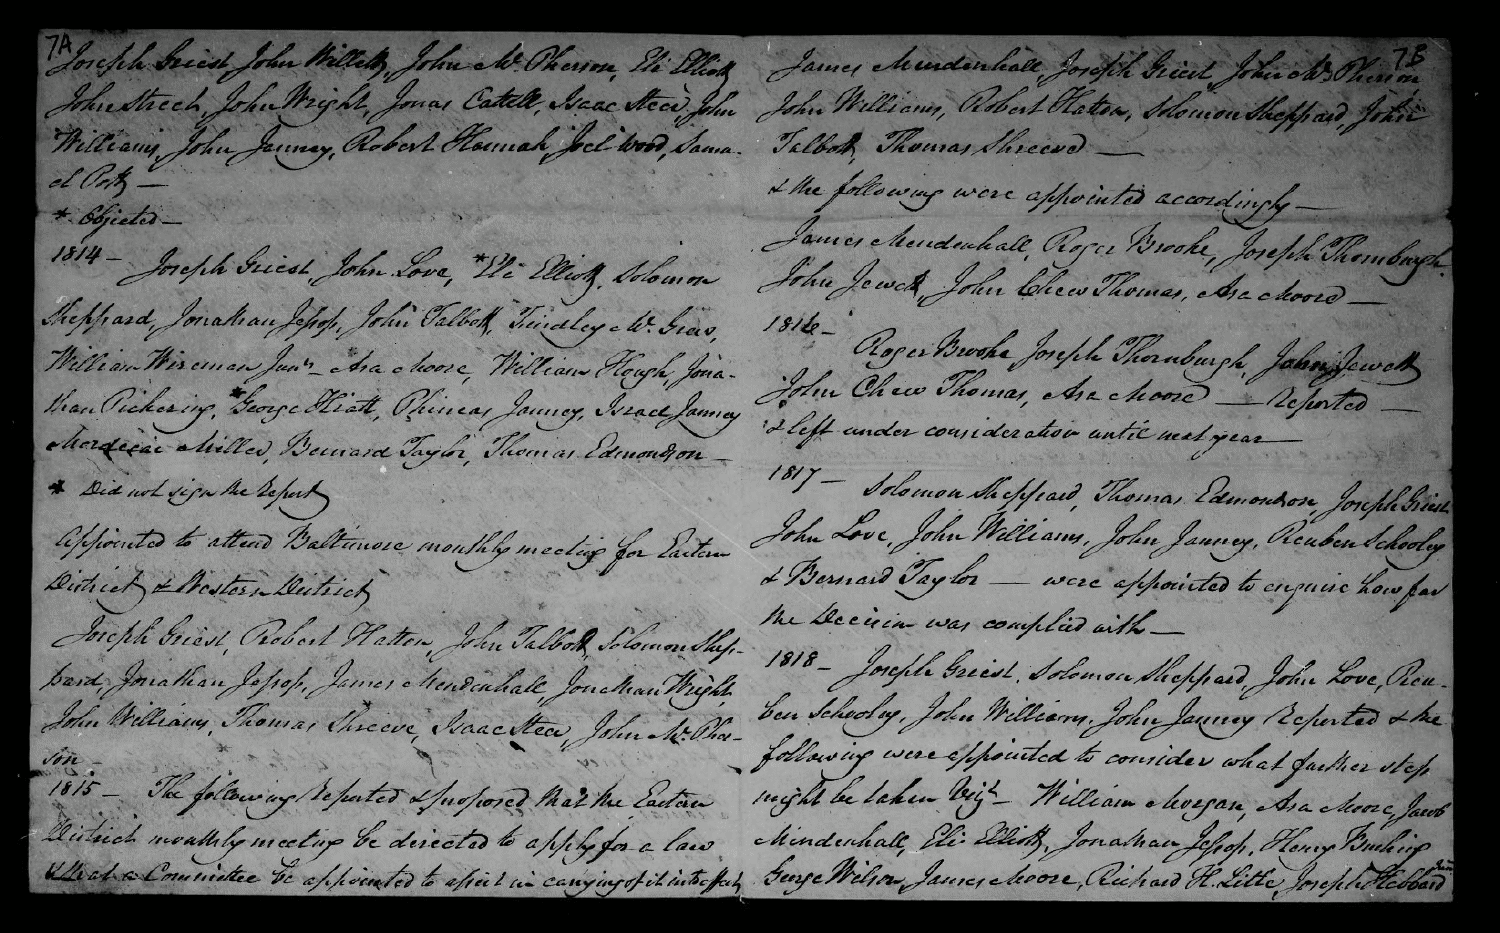 7A
Joseph Griest, John Willetts, John Mc. Pherson, Eli Elliott
John Street, John Wright, Jonas Cattell, Isaac Steer, John
Williams, John Janney, Robert Hannah, Joel Wood, Samu-
el Potts —
* Objected —
1814 —
Joseph Griest, John Love, *Eli Elliott, Solomon
Sheppard, Jonathan Jessop, John Talbott, Findley Mc. Grew,
William Wireman Junr. Asa Moore, William Hough, Jona-
than Pickering, *George Hiatt, Phineas Janney, Israel Janney
Mordecai Miller, Bernard Taylor, Thomas Edmondson —
* Did not sign the report
Appointed to attend Baltimore monthly meeting for Eastern
District & Western District
Joseph Griest, Robert Hatton, John Talbott, Solomon Shep-
pard, Jonathan Jessop, James Mendenhall, Jonathan Wright,
John Williams, Thomas Shreeve, Isaac Steer, John Mc. Pher-
son —
1815 — The following reported & proposed that the Eastern
District monthly meeting be directed to apply for a law
& that a Committee be appointed to assist in carrying of it into effect,
7B
James Mendenhall, Joseph Griest, John Mc Pherson,
John Williams, Robert Hatton, Solomon Sheppard, John
Talbott, Thomas Shreeve —
& the following were appointed accordingly —
James Mendenhall, Roger Brooke, Joseph Thornburgh
John Jewett, John Chew Thomas, Asa Moore —
1816 —
Roger Brooke, Joseph Thornburgh, John Jewett
John Chew Thomas, Asa Moore — Reported —
& left under consideration until next year —
1817 — Solomon Sheppard, Thomas Edmondson, Joseph Griest
John Love, John Williams, John Janney, Reuben Schooley
& Bernard Taylor — were appointed to enquire how far
the Decision was complied with —
1818 — Joseph Griest, Solomon Sheppard, John Love, Reu-
ben Schooley, John Williams, John Janney Reported & the
following were appointed to consider what further step
might be taken Vizt — William Morgan, Asa Moore, Jacob
Mendenhall, Eli Elliott, Jonathan Jessop, Henry
George Wilson, James Moore, Richard H. Little, Joseph Hebbard